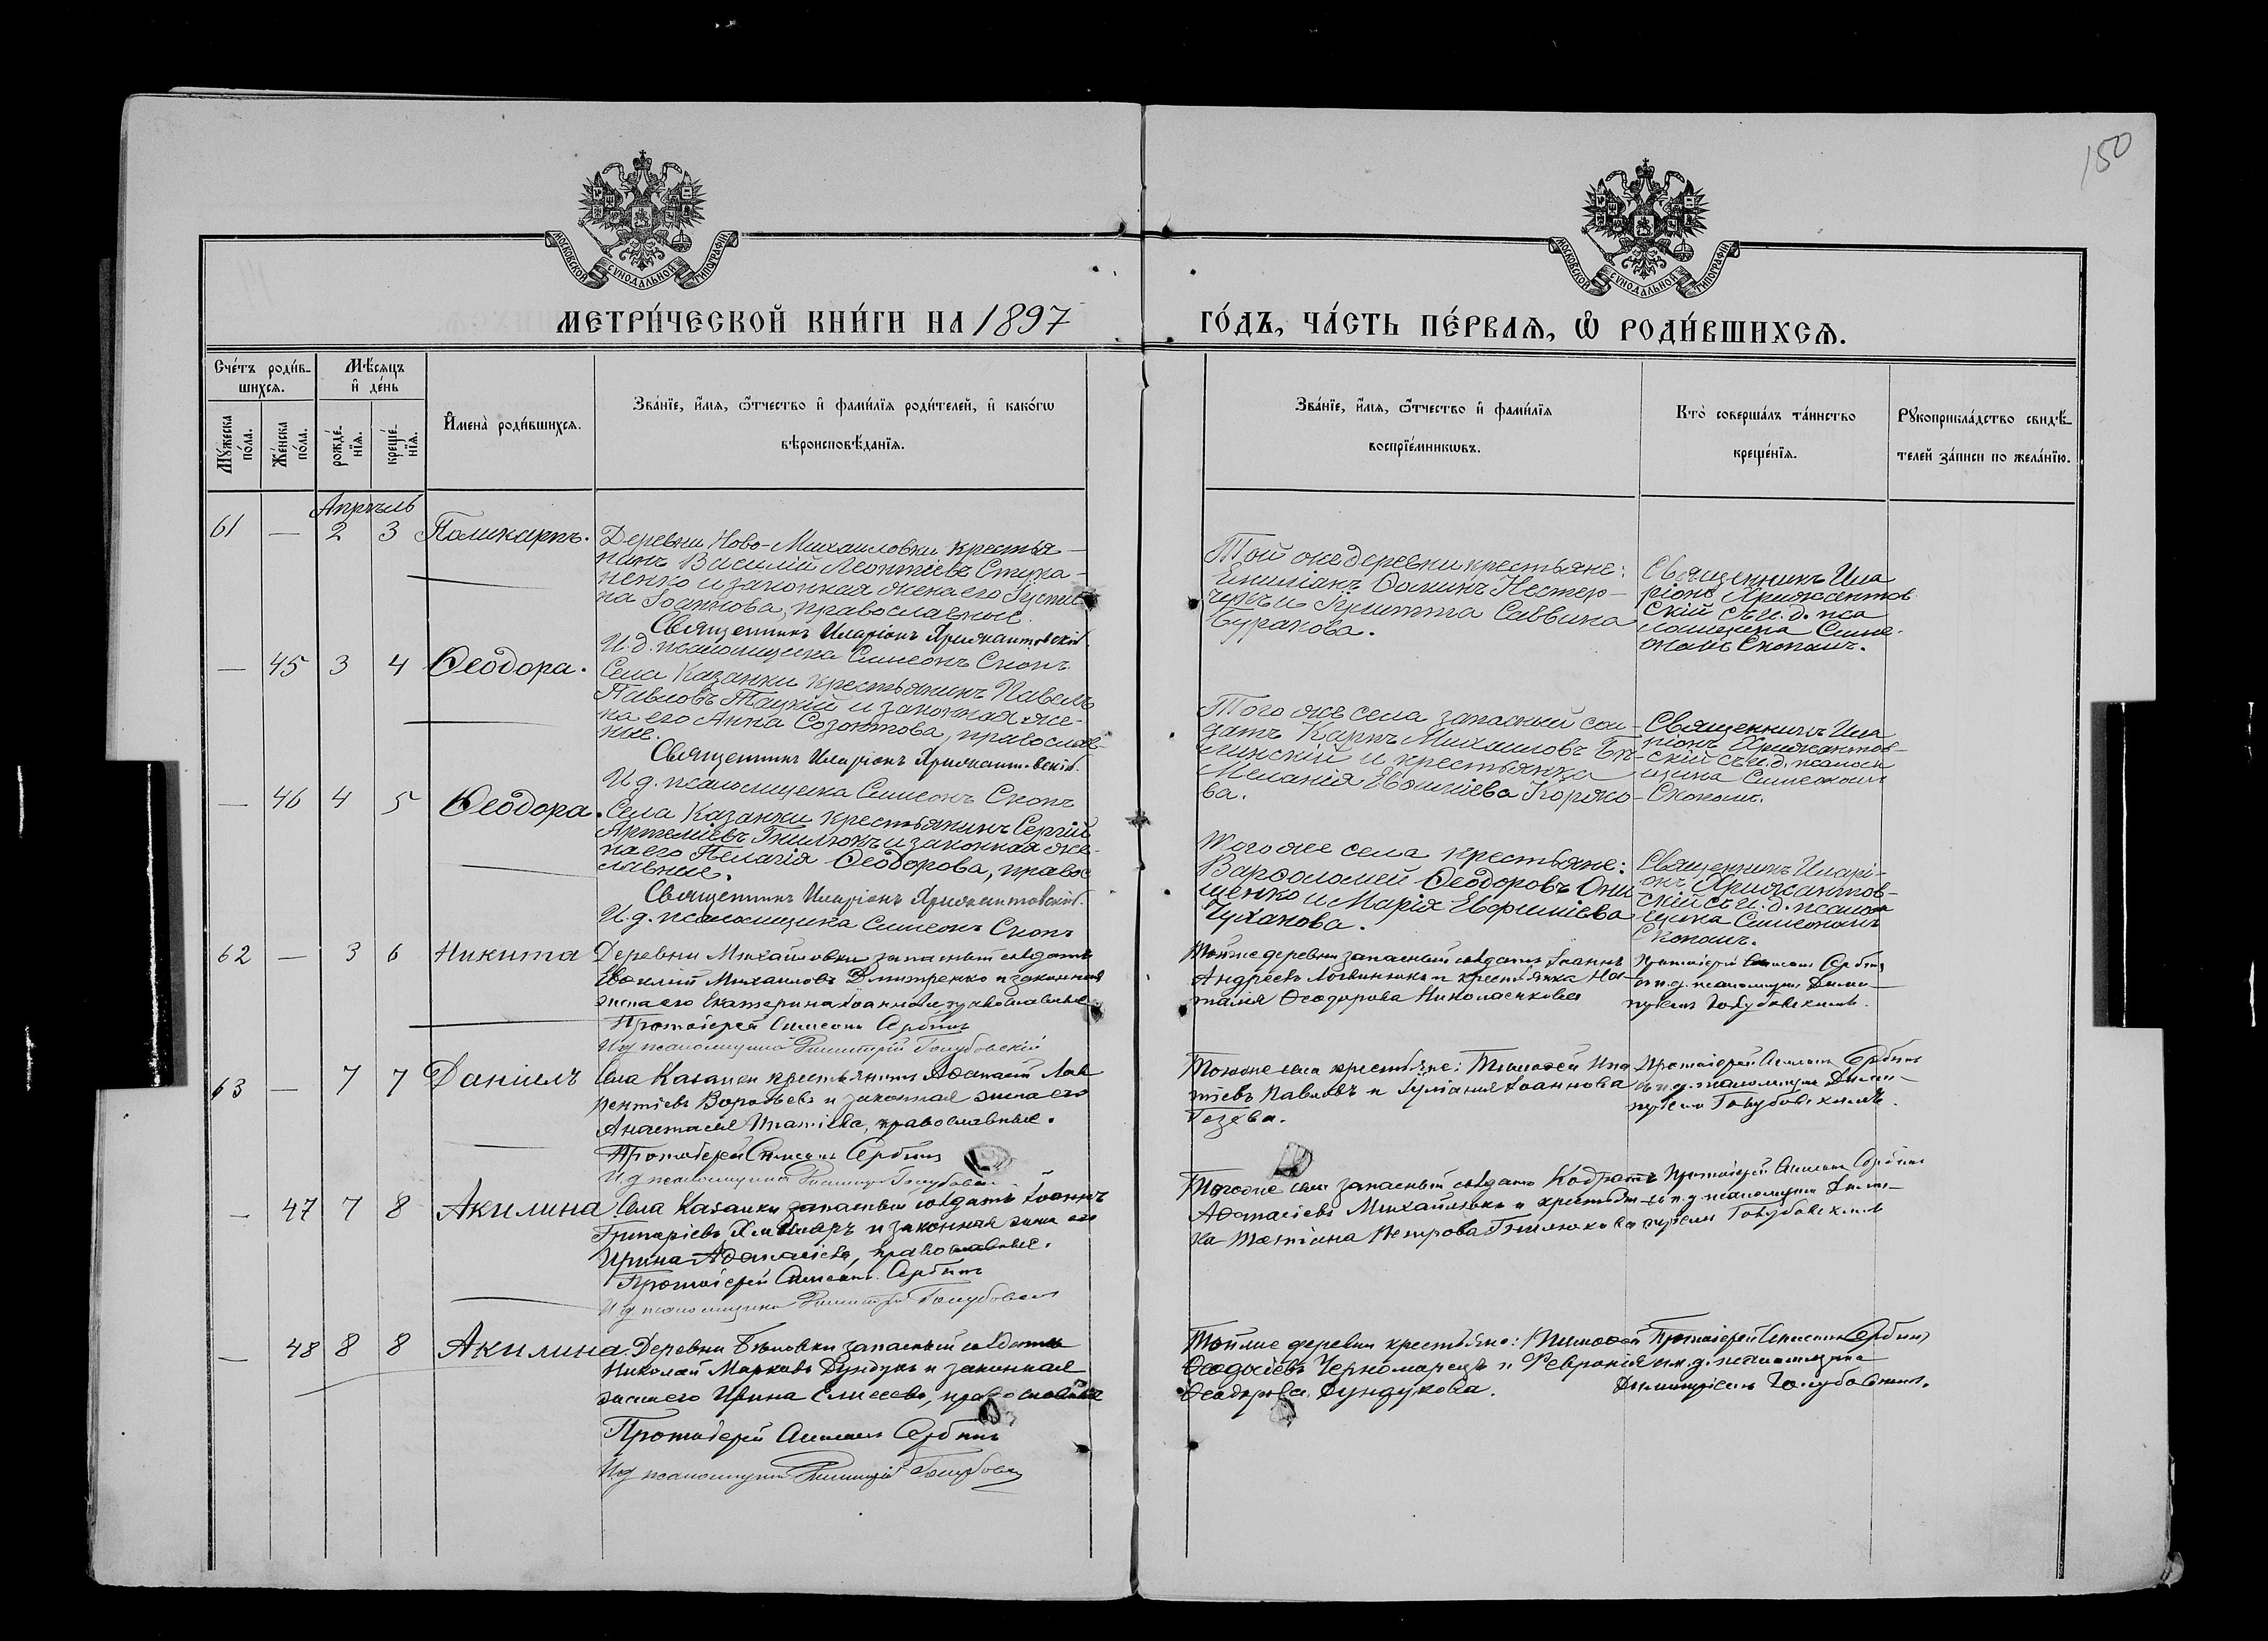 150
МОСКОВСКОЙ СѴНОДАЛЬНОЙ ТИПОГРАФІИ
МОСКОВСКОЙ СѴНОДАЛЬНОЙ ТИПОГРАФІИ
МЕТРИ́ЧЕСКОЙ КНИ́ГИ НА 1897
ГО́ДЪ, ЧА́СТЬ ПЕ́РВАѦ, Ѡ҆ РОДИ́ВШИХСѦ.
Сче́тъ роди́в-
шихсѧ.
Мꙋ́жеска по́ла.
Же́нска по́ла.
Мѣ́сѧцъ
и҆ де́нь
рожде́-
нїѧ.
креще́-
нїѧ.
И҆мена̀ роди́вшихсѧ.
Зва́нїе, и҆́мѧ, ѻ҆́тчество и҆ фами́лїѧ роди́телей, и҆ како́гѡ
вѣроисповѣ́данїѧ.
Зва́нїе, и҆́мѧ, ѻ҆́тчество и҆ фами́лїѧ
воспрїе́мникѡвъ.
Кто̀ соверша́лъ та́инство
креще́нїѧ.
Рꙋкоприкла́дство свидѣ́-
телей за́писи по жела́нїю.
Апрѣль
61 — 2 3 Поликарпъ.
Деревни Ново-Михаиловки крестья-
нинъ Василій Леонтіевъ Стука-
ненко и законная жена его Іусти-
на Іоаннова, православные.
Священникъ Иларіонъ Хрисантовскій.
И.д. псаломщика Симеонъ Скопъ
Той же деревни крестьяне:
Емиліанъ Ѳоминъ Нестер-
чукъ и Саввина
Буракова.
Священникъ Ила
ріонъ Хрисантов
скій съ и.д. пса
ломщика Симе-
ономъ Скопомъ.
— 45 3 4 Ѳеодора.
Села Казанки крестьянинъ Павелъ
Павловъ Тацкій и законная же-
на его Анна Созонтова, православ-
ные.
Священникъ Иларіонъ Хрисантовскій.
И.д. псаломщика Симеонъ Скопъ
Того же села запасный сол-
датъ Карпъ Михаиловъ
и крестьянка
Меланія Евѳиміева
ва.
Священникъ Ила
ріонъ Хрисантов-
скій съ и.д. псалом
щика Симеономъ
Скопомъ.
— 46 4 5 Ѳеодора.
Села Казанки крестьянинъ Сергій
Артеміевъ Гнилюкъ и законная же-
на его Пелагія Ѳеодорова, правос
лавные.
Священникъ Иларіонъ Хрисантовскій.
И.д. псаломщика Симеонъ Скопъ
Того же села крестьяне:
Варѳоломей Ѳеодоровъ Они-
щенко и Марія Евѳиміева
Чуханова.
Священникъ Иларі-
онъ Хрисантов-
скій съ и.д. псалом
щика Симеономъ
Скопомъ.
62 — 3 6 Никита
Деревни Михайловки запасный солдатъ
Михаиловъ Дмитренко и законная
жена его Екатерина Іоаннова, православные
Протоіерей Симеонъ Сербинъ
И.д. псаломщика Димитрій Голубовскій
Той же деревни запасный солдатъ Іоаннъ
Андреевъ Логвинюкъ и крестьянка На-
талія Ѳеодорова Николаенкова
Протоіерей Симеонъ Сербинъ
съ и.д. псаломщика Дими-
тріемъ Голубовскимъ.
63 — 7 7 Даніилъ
Села Казанки крестьянинъ Аѳанасій Лав
рентіевъ Воробьевъ и законная жена его
Анастасія православные.
Протоіерей Симеонъ Сербинъ
И.д. псаломщика Димитрій Голубовскій
Того же села крестьяне: Тимоѳей Ипа
тіевъ Павловъ и Іуліанія Іоаннова
Протоіерей Симеонъ Сербинъ
съ и.д. псаломщика Дими-
тріемъ Голубовскимъ.
— 47 7 8 Акилина
Села Казанки запасный солдатъ Іоаннъ
Григоріевъ и законная жена его
Ирина Аѳанасіева, православные.
Протоіерей Симеонъ Сербинъ
И.д. псаломщика Димитрій Голубовскій
Того же села запасный солдатъ Кодратъ
Аѳанасіевъ Михайлюкъ и крестьян-
ка Татіана Петрова Гнилюкова
Протоіерей Симеонъ Сербинъ
съ и.д. псаломщика Дими-
тріемъ Голубовскимъ
— 48 8 8 Акилина.
Деревни Бѣловки запасный солдатъ
Николай Марковъ Дундукъ и законная
жена его Ирина Елисеева, православные
Протоіерей Симеонъ Сербинъ
И.д. псаломщика Димитрій Голубовскій
Той же деревни крестьяне: Тимоѳей
Ѳеодосіевъ Черноморецъ и Февронія
Ѳеодорова Дундукова.
Протоіерей Симеонъ Сербинъ
съ и.д. псаломщика
Димитріемъ Голубовскимъ.